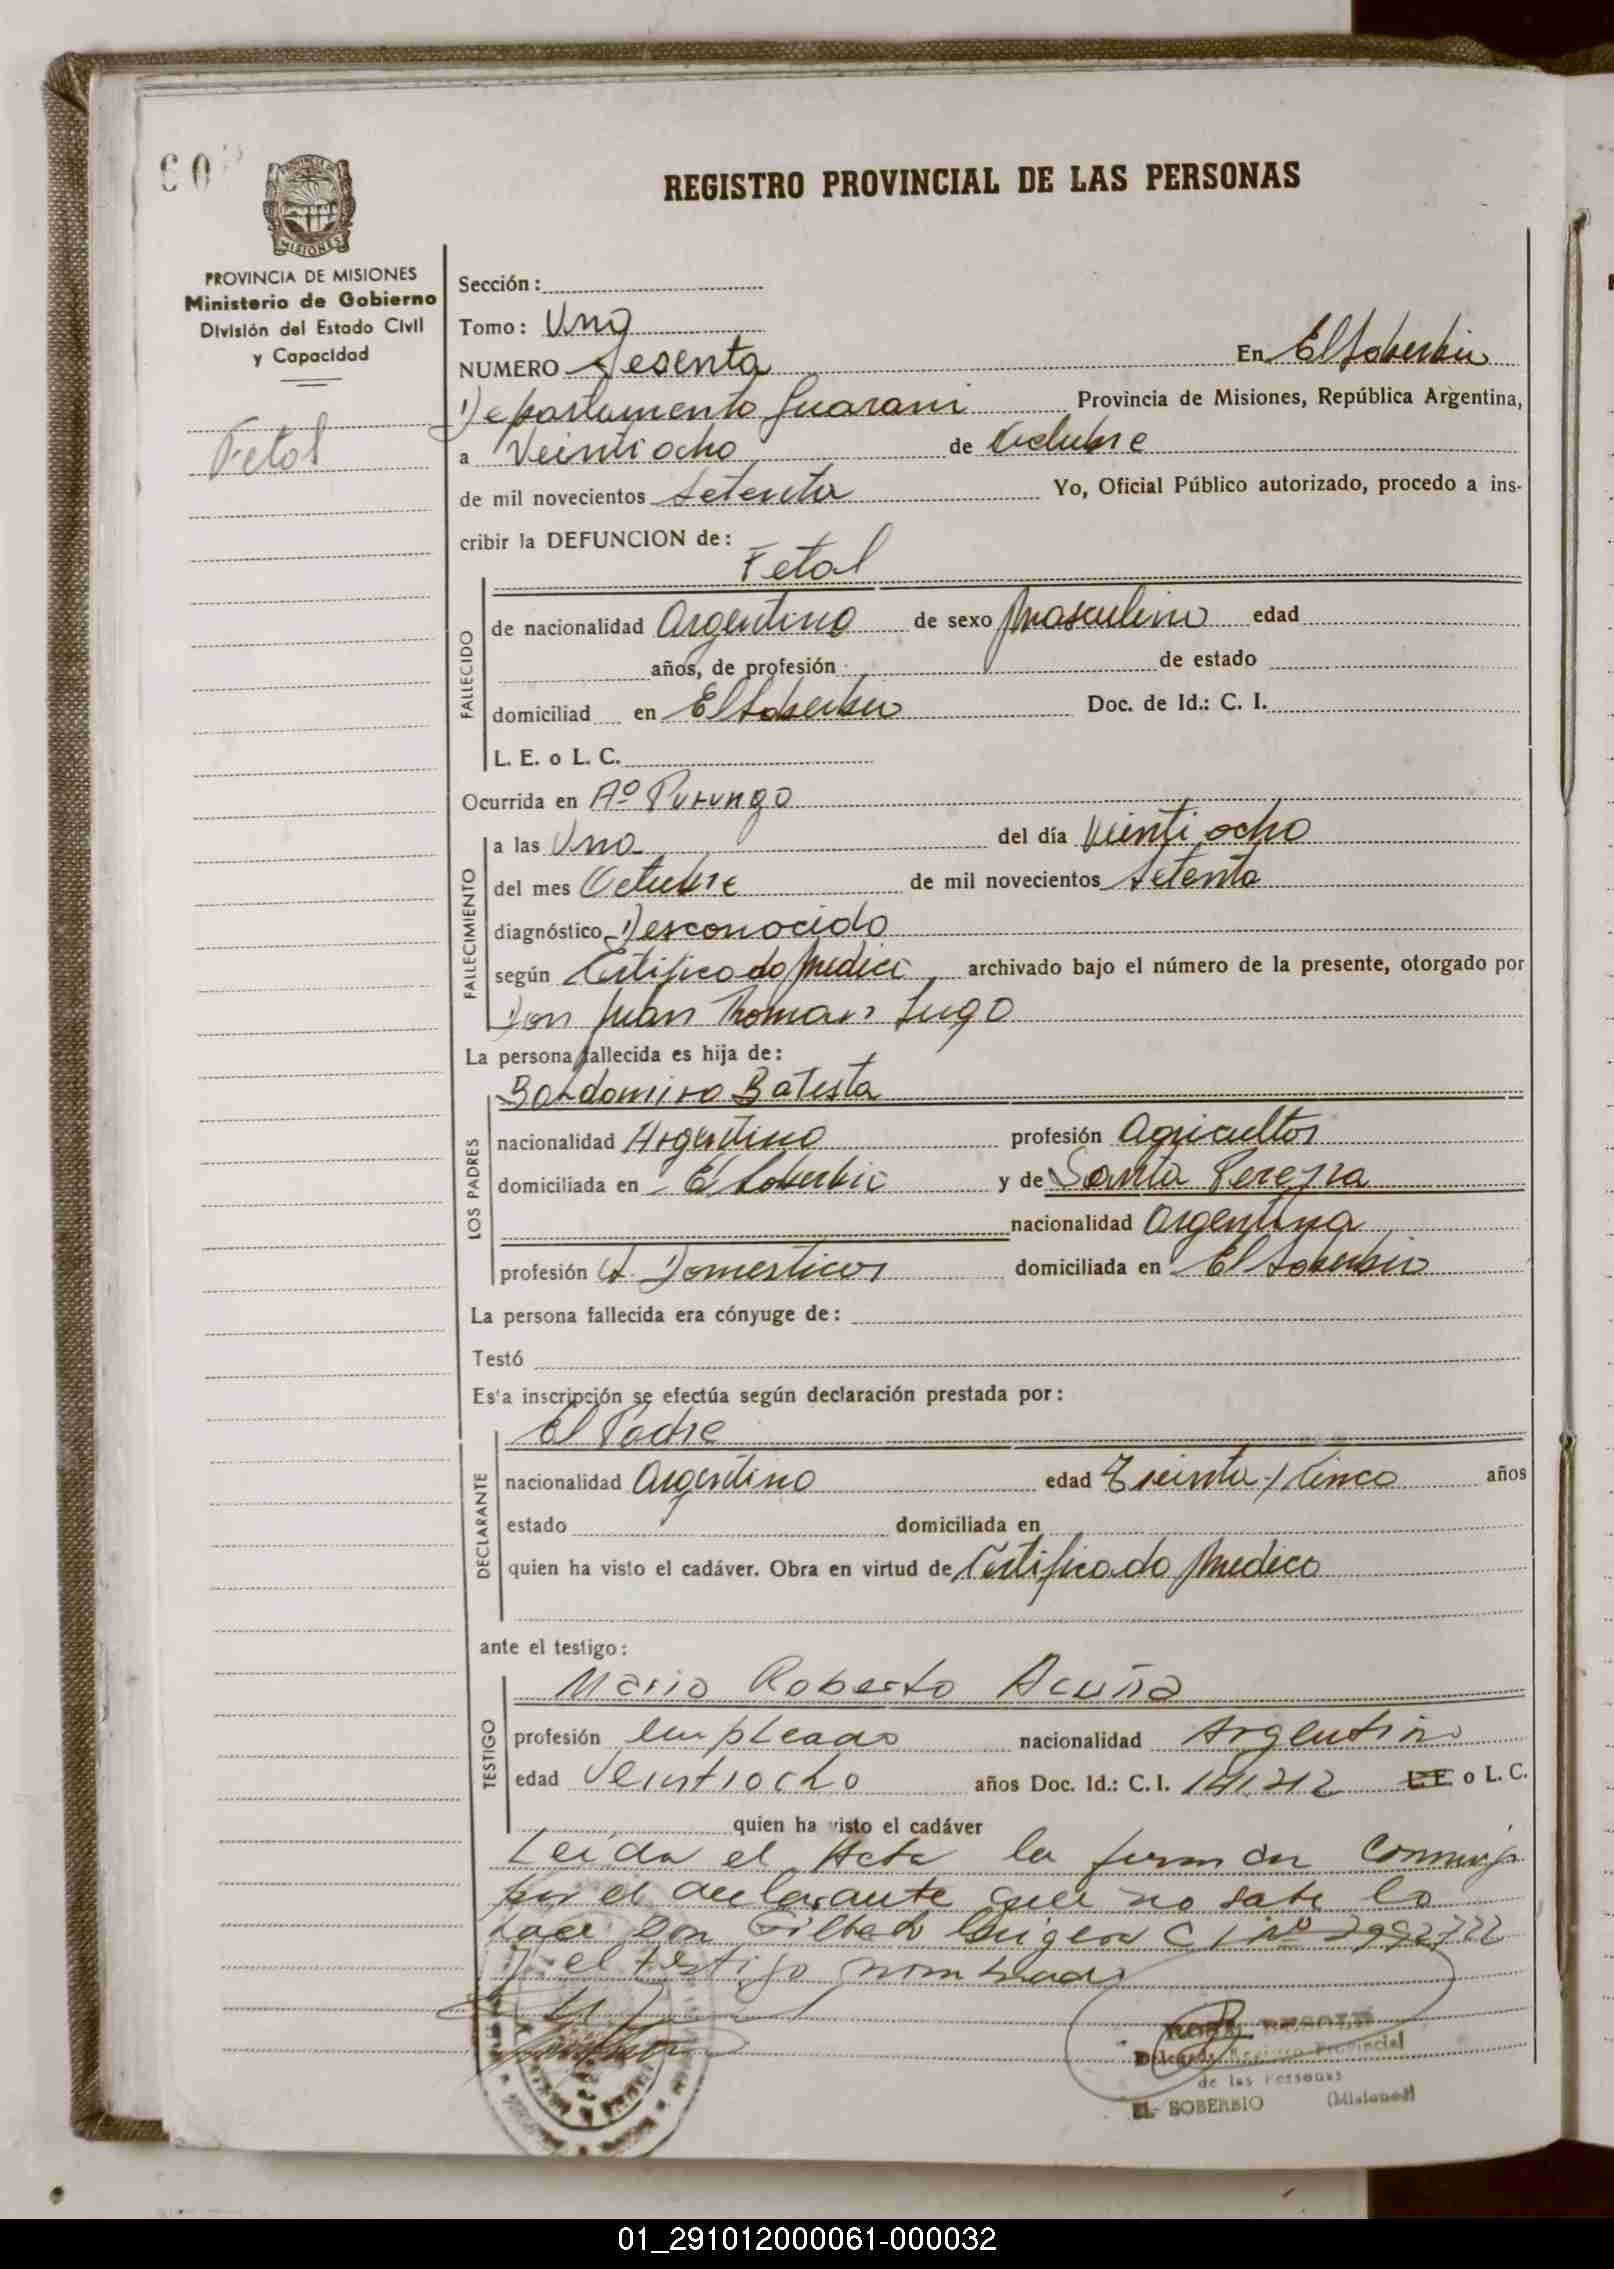 60
REGISTRO PROVINCIAL DE LAS PERSONAS
PROVINCIA DE MISIONES
Ministerio de Gobierno
División del Estado Civil
y Capacidad
Fetal
Sección:
Tomo: Uno
NUMERO Sesenta En El Soberbio
Departamento Guarani Provincia de Misiones, República Argentina,
a Veintiocho de Octubre
de mil novecientos setenta Yo, Oficial Público autorizado, procedo a ins-
cribir la DEFUNCION de:
Fetal
FALLECIDO
de nacionalidad Argentino de sexo Masculino edad
años, de profesión de estado
domiciliad en El Soberbio Doc. de Id.: C. I.
L. E. o L. C.
Ocurrida en Aº Purungo
FALLECIMIENTO
a las Una del día Veintiocho
del mes Octubre de mil novecientos Setenta
diagnóstico Desconocido
según Certificado Medico archivado bajo el número de la presente, otorgado por
Don Juan Lugo
La persona fallecida es hija de:
Baldomiro Batista
LOS PADRES
nacionalidad Argentino profesión Agricultor
domiciliada en El Soberbio y de Santa Pereyra
nacionalidad Argentina
profesión Q. Domesticos domiciliada en El Soberbio
La persona fallecida era cónyuge de:
Testó
Esta inscripción se efectúa según declaración prestada por:
El Padre
DECLARANTE
nacionalidad Argentino edad Treinta y Cinco años
estado domiciliada en
quien ha visto el cadáver. Obra en virtud de Certificado Medico
ante el testigo:
Mario Roberto Acuña
TESTIGO
profesión empleado nacionalidad Argentino
edad Veintiocho años Doc. Id.: C. I. 141.212 L.E. o L. C.
quien ha visto el cadáver
Leida el Acta la firman conmigo
por el declarante que no sabe lo
hacer Don C I Nº 2992722
y el testigo nombrado
Delegado Registro Provincial
de las Personas
EL SOBERBIO (Misiones)
01_291012000061-000032